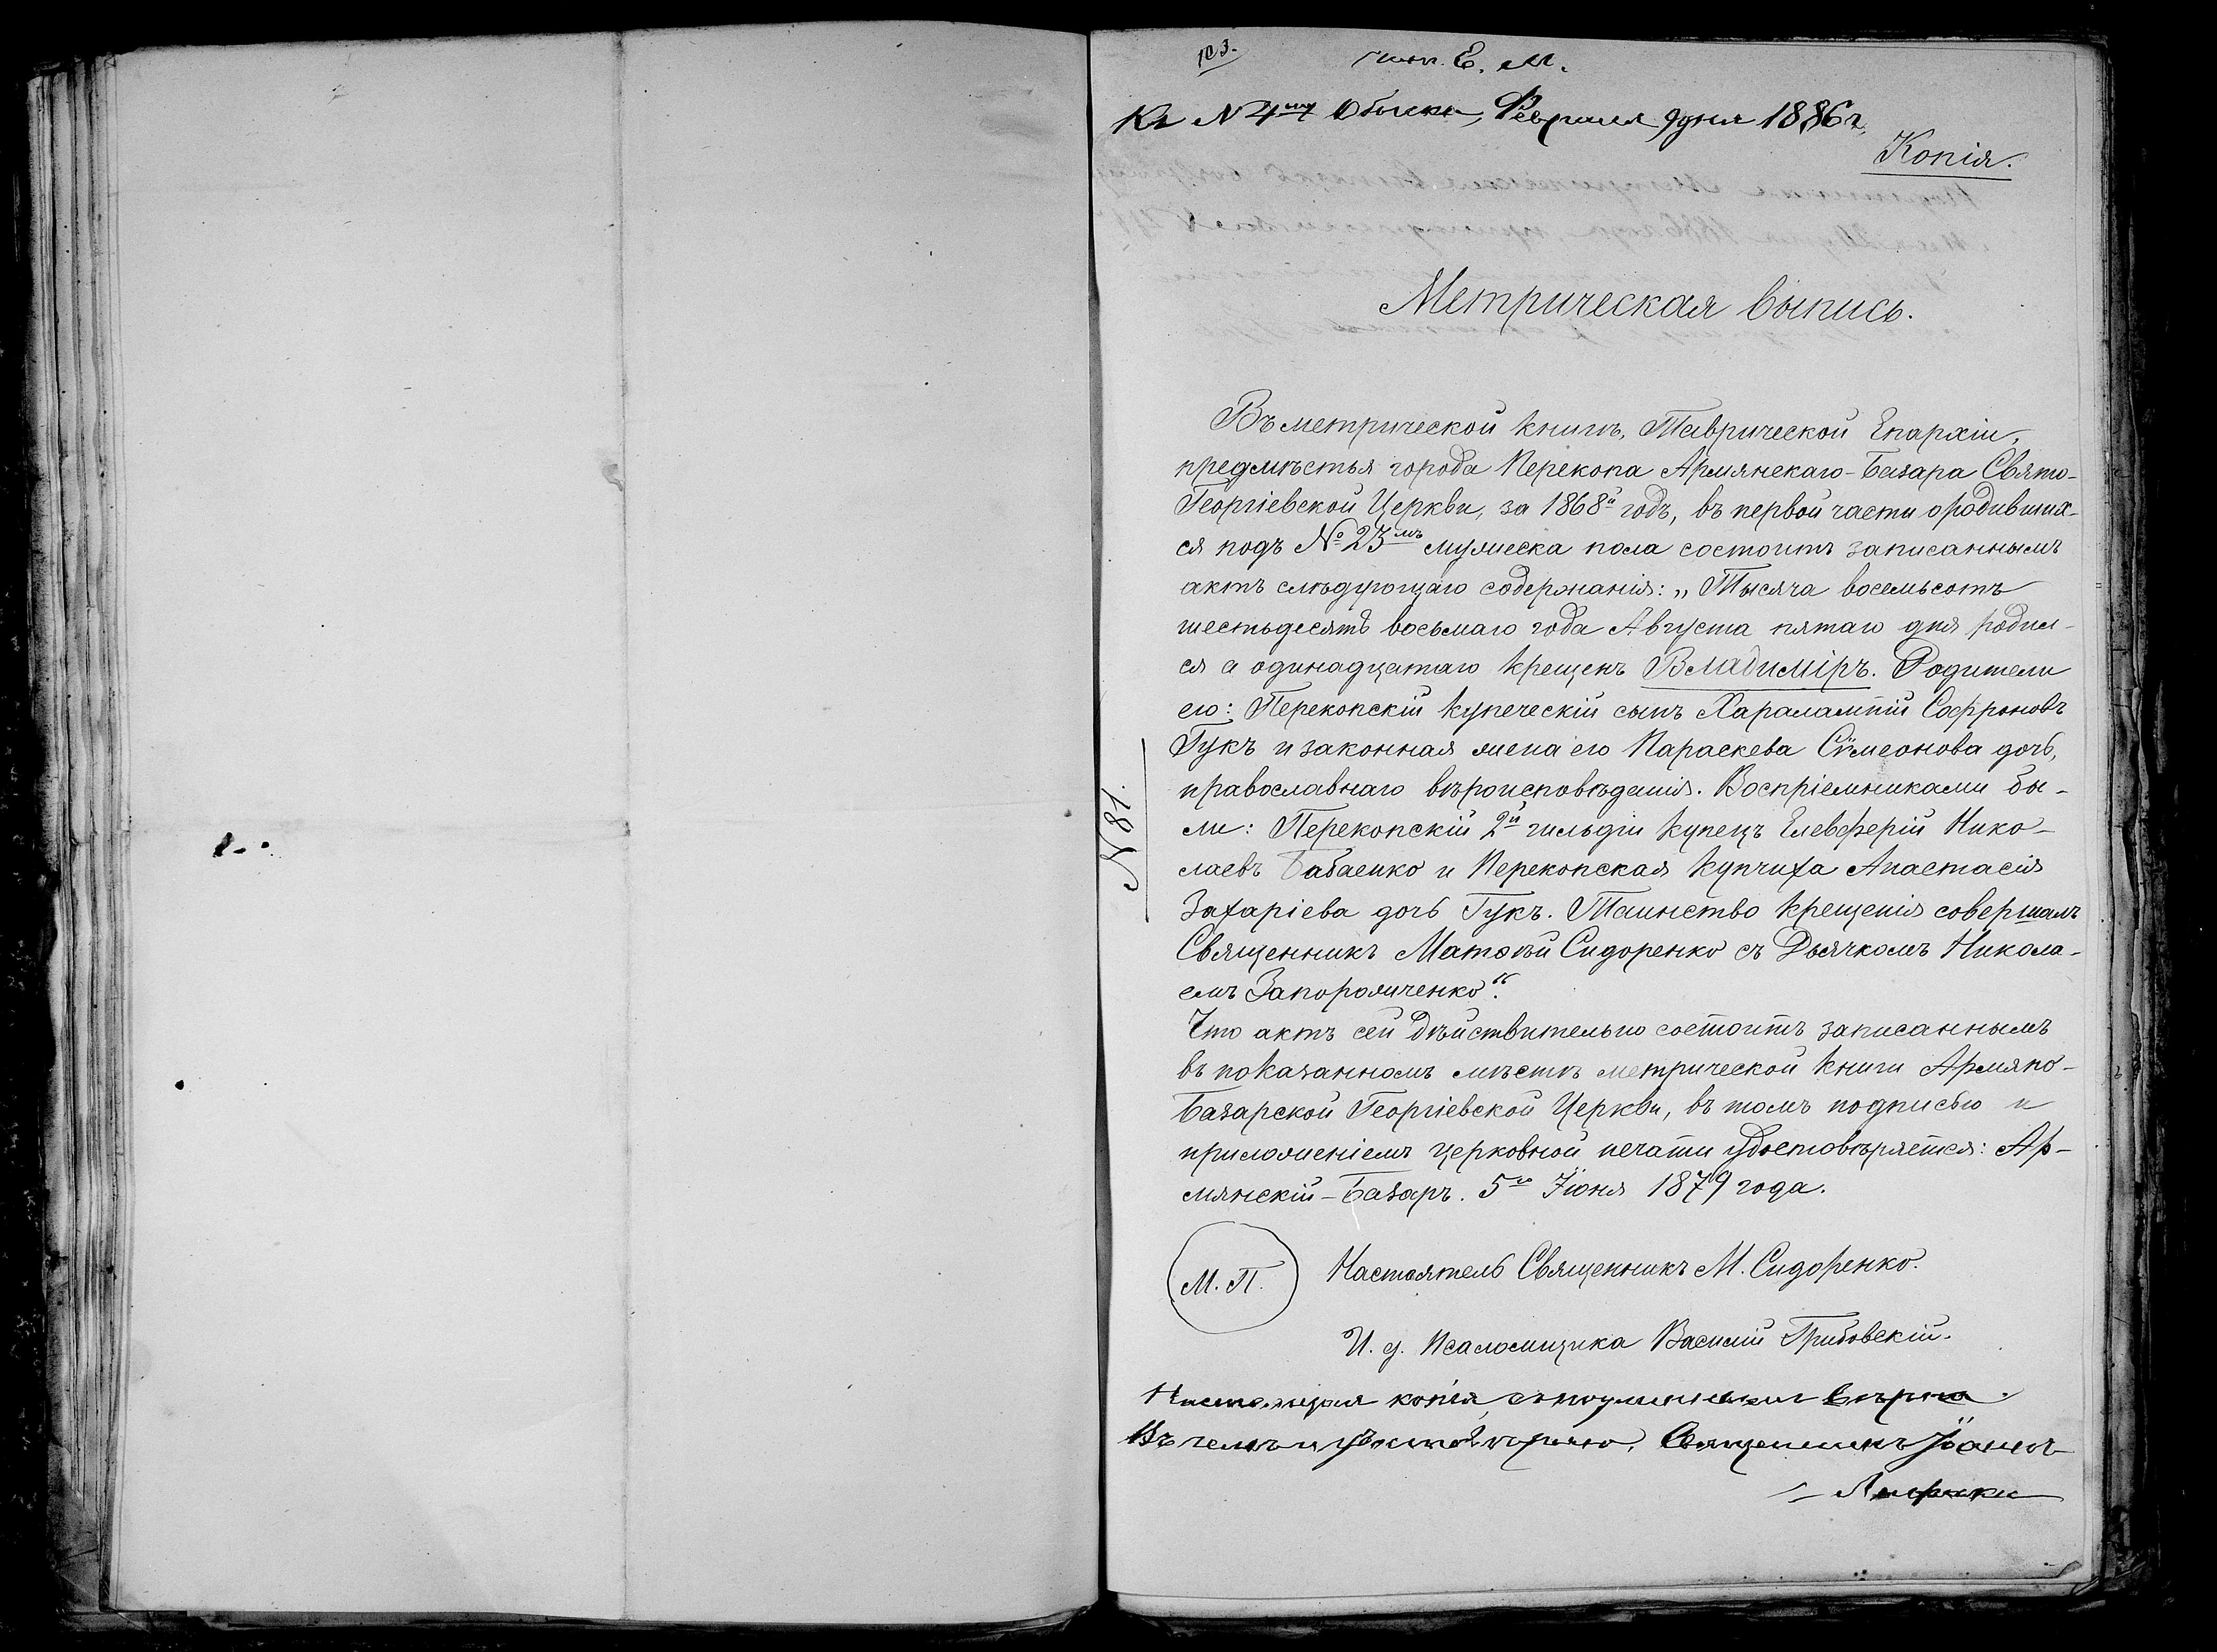 103.
Е. М.
Къ N 4му Обыску, Февраля 9 дня 1886 г.
Копія.
Метрическая выпись.
Въ метрической книгѣ, Таврической Епархіи,
предмѣстья города Перекопа Армянскаго-Базара Свято-
Георгіевской Церкви, за 1868й годъ, въ первой части о родивших-
ся подъ № 23мъ мужеска пола состоитъ записаннымъ
актъ слѣдующаго содержанія: „Тысяча восемьсотъ
шестьдесятъ восьмаго года Августа пятаго дня родил-
ся а одинадцатаго крещенъ Владиміръ. Родители
его: Перекопскій купеческій сынъ Харалампій Софроновъ
Гукъ и законная жена его Параскева Сѵмеонова дочь,
православнаго вѣроисповѣданія. Воспріемниками бы-
ли: Перекопскій 2й гильдіи купецъ Елевферій Нико-
лаевъ Бабаенко и Перекопская купчиха Анастасія
Захаріева дочь Гукъ. Таинство крещенія совершалъ
Священникъ Матѳѣй Сидоренко съ Дьячкомъ Никола-
емъ Запорожченко“.
Что актъ сей дѣйствительно состоитъ записаннымъ
въ показанномъ мѣстѣ метрической книги Армяно-
Базарской Георгіевской Церкви, въ томъ подписью и
приложеніемъ церковной печати удостовѣряется: Ар-
мянскій-Базаръ. 5го Іюня 1879 года.
М. П.
Настоятель Священникъ М. Сидоренко.
И. д. Псаломщика Василій Грибовскій.
Настоящая копія съ подлинникомъ вѣрна.
Въ чемъ и удостовѣряю, Священникъ Іоаннъ
N 81.